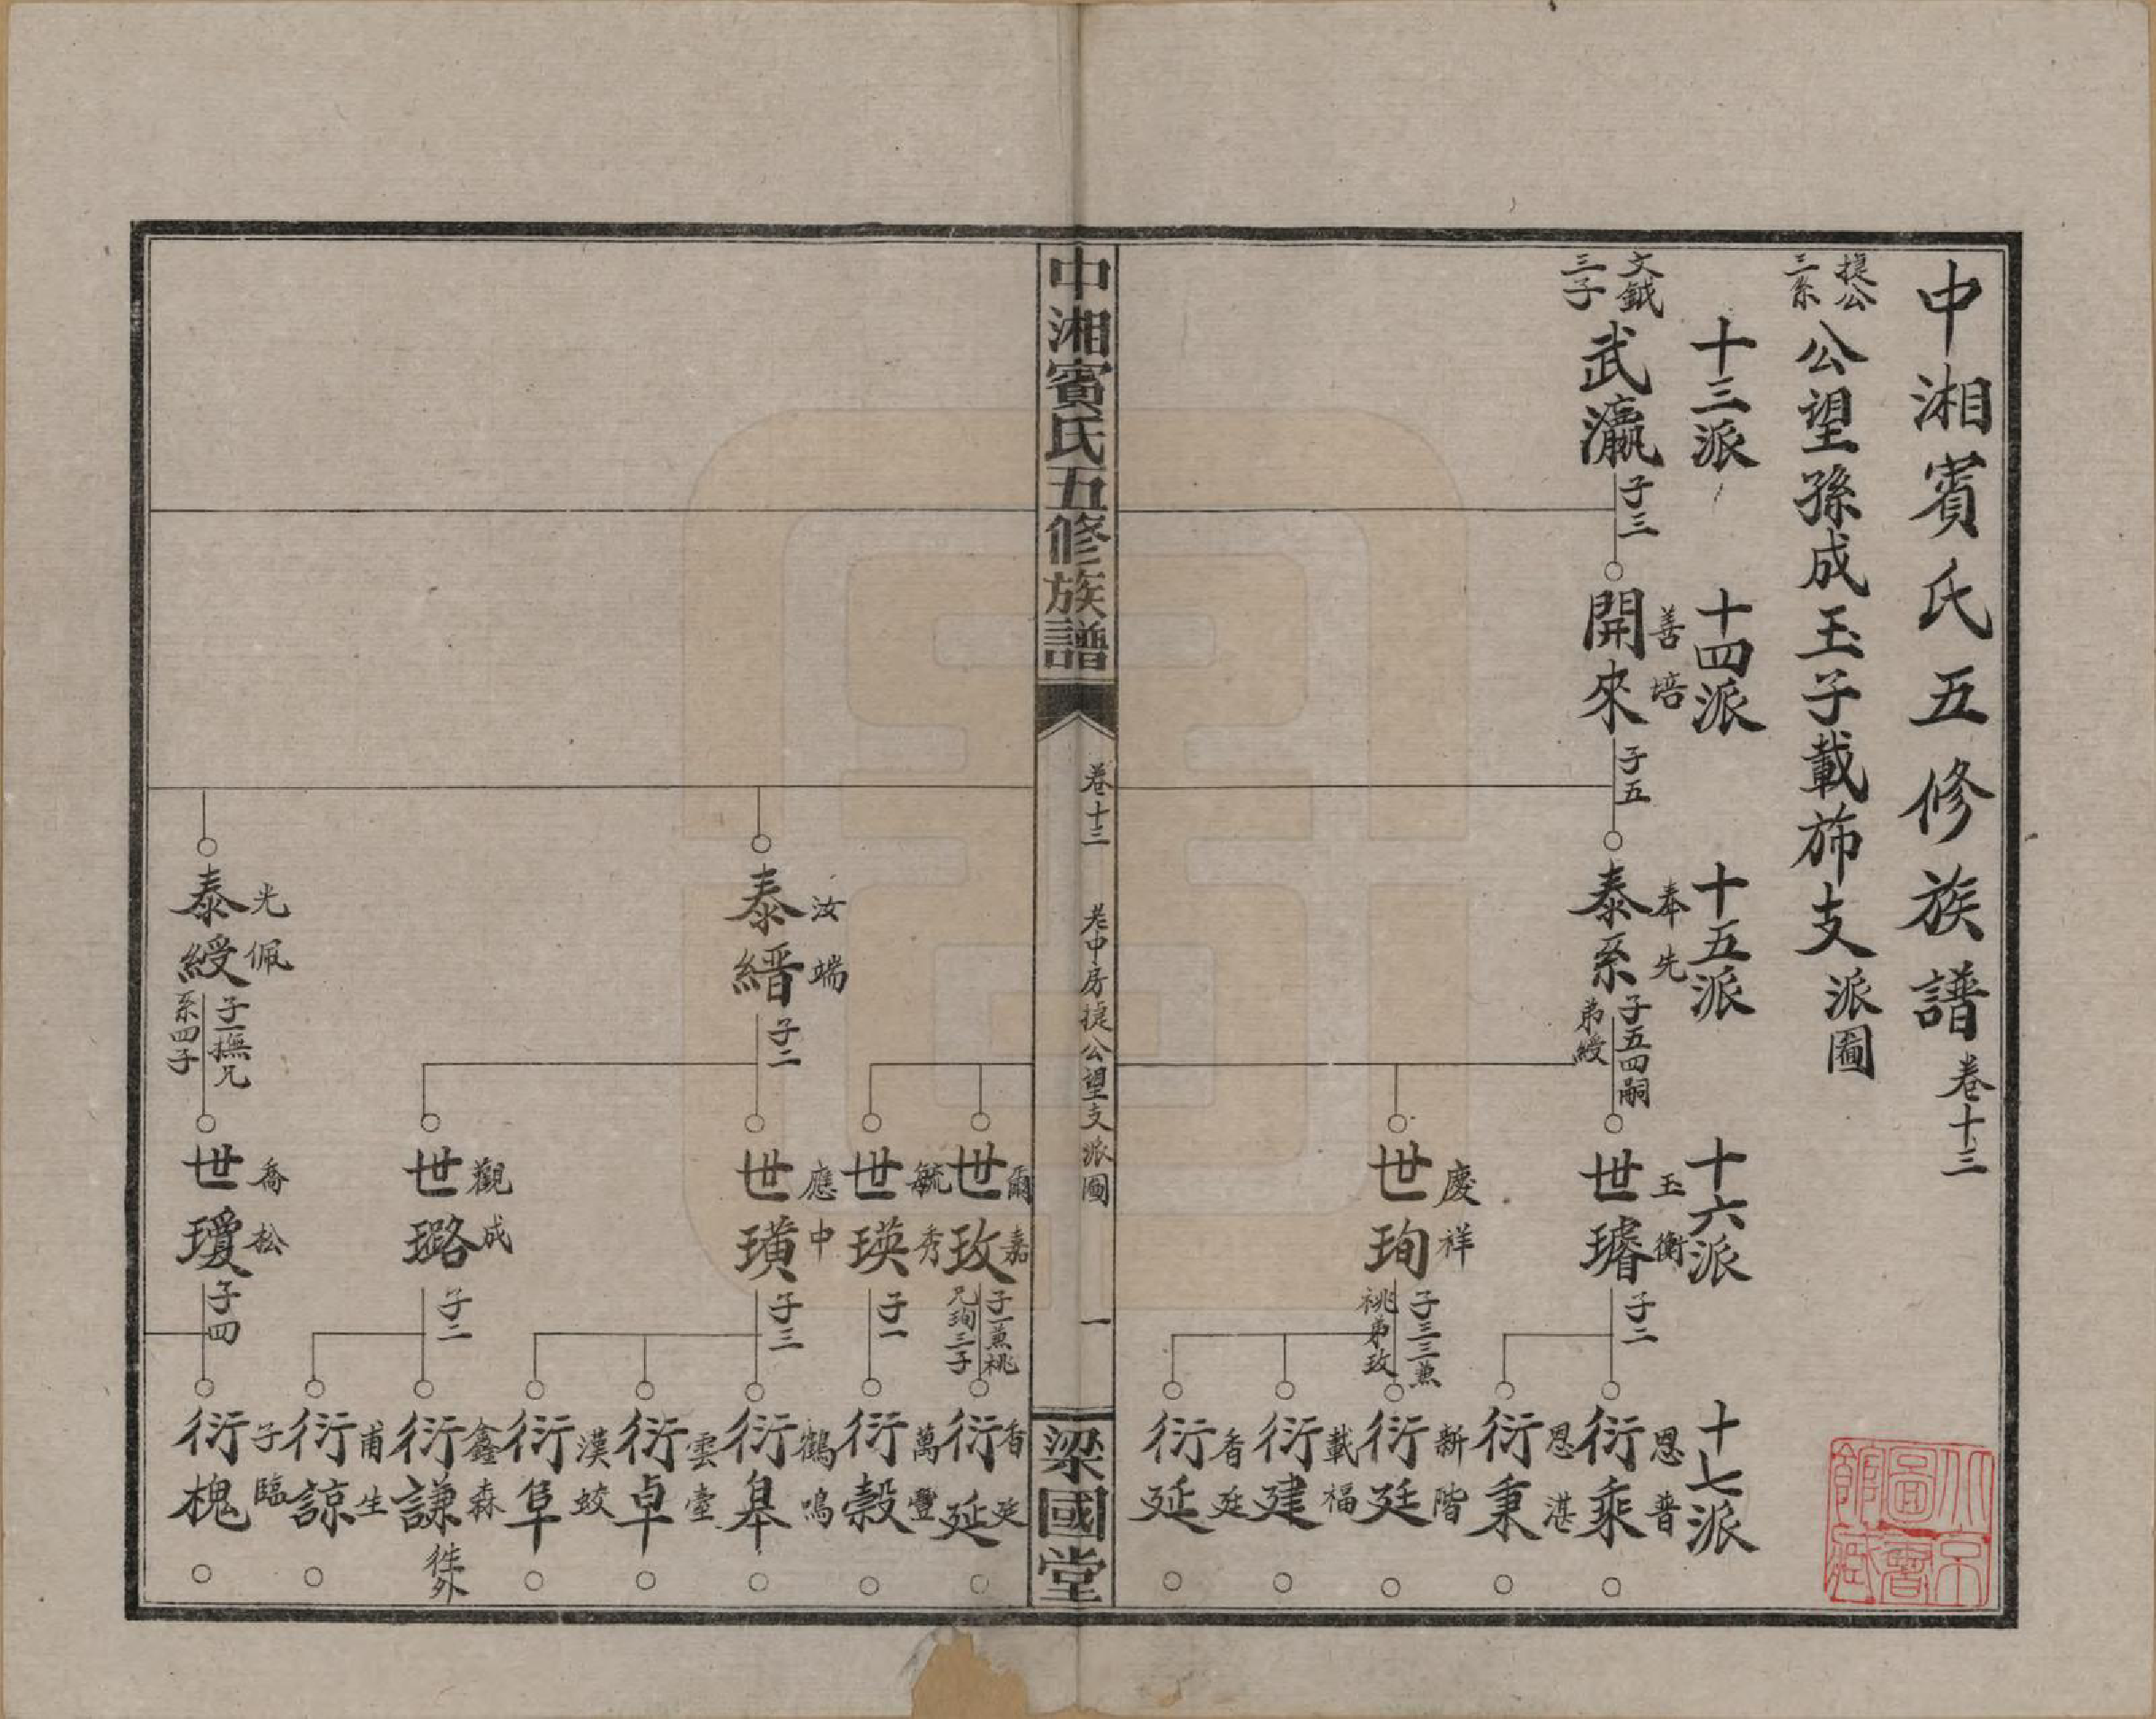 中湘賓氏五修族譜 卷十三
捷公三系 公望孫成玉子載斾支派圖
十三派
十四派
十五派
十六派
十七派
文鉞三子 武瀛 子三
開來 善培 子五
泰系 奉先 子五四嗣弟綬
世璿 玉衡 子二
衍乘 恩普
衍秉 恩湛
世珣 慶祥 子三三兼祧弟玫
衍廷 新階
衍建 載福
衍延 香廷
中湘賓氏五修族譜
卷十三 老中房捷公望支派圖 一
梁國堂
世玫 爾嘉 子一兼祧兄珣三子
衍延 香廷
世瑛 毓秀 子一
衍穀 萬豐
泰縉 汝端 子二
世璜 應中 子三
衍皋 鶴鳴
衍卓 雲臺
衍阜 漢蛟
世璐 觀成 子二
衍謙 鑫森 徙外
衍諒 甫生
泰綬 光佩 子一撫兄系四子
世瓊 喬松 子四
衍槐 子臨
北京圖書館藏